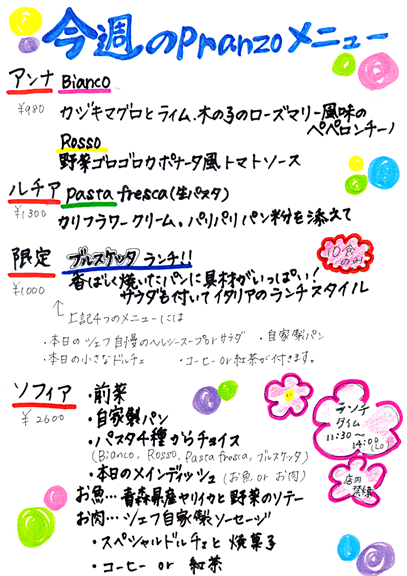 今週のPranzoメニュー
アンナ Bianco
¥980 カジキマグロとライム、木の子のローズマリー風味の
ペペロンチーノ
Rosso
野菜ゴロゴロカポナータ風トマトソース
ルチア pasta fresca(生パスタ)
¥1300
カリフラワークリーム。パリパリパン粉を添えて
限定 ブルスケッタ ランチ!!
10食のみ
¥1000 香ばしく焼いたパンに具材がいっぱい!
サラダも付いてイタリアのランチスタイル
↑上記4つのメニューには
・本日のシェフ自慢のヘルシースープorサラダ ・自家製パン
・本日の小さなドルチェ ・コーヒーor紅茶が付きます。
ソフィア ・前菜
¥2600 ・自家製パン
・パスタ4種からチョイス
(Bianco, Rosso, Pasta fresca, ブルスケッタ)
・本日のメインディッシュ(お魚 or お肉)
お魚…青森県産ヤリイカと野菜のソテー
お肉…シェフ自家製ソーセージ
・スペシャルドルチェと焼菓子
・コーヒー or 紅茶
ランチ
タイム
11:30~
14:00
(LO)
店内
禁煙